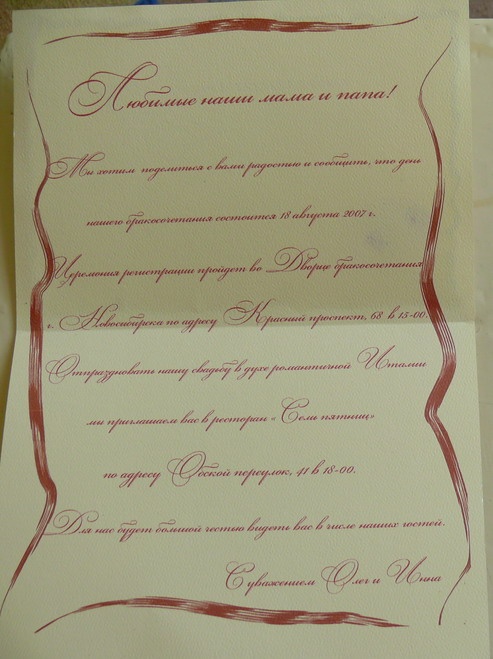 Любимые наши мама и папа!
Мы хотим поделиться с вами радостью и сообщить, что день
нашего бракосочетания состоится 18 августа 2007 г.
Церемония регистрации пройдет во Дворце бракосочетания
г. Новосибирска по адресу Красный проспект, 68 в 15-00.
Отпраздновать нашу свадьбу в духе романтичной Италии
мы приглашаем вас в ресторан «Семь пятниц»
по адресу Обской переулок, 41 в 18-00.
Для нас будет большой честью видеть вас в числе наших гостей.
С уважением Олег и Инна